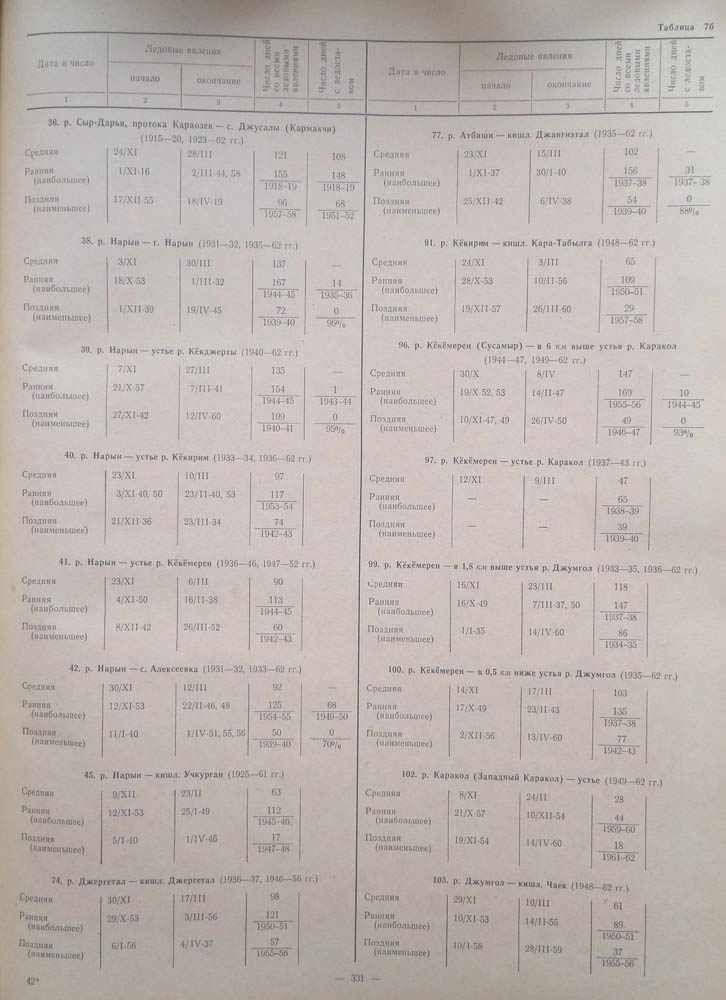 Таблица 76
Дата и число
Ледовые явления
начало
окончание
Число дней со всеми ледовыми явлениями
Число дней с ледоставом
1 2 3 4 5
36. р. Сыр-Дарья, протока Караозек — с. Джусалы (Кармакчи)
(1915—20, 1923—62 гг.)
Средняя 24/XI 28/III 121 108
Ранняя 1/XI-16 2/III-44, 58 155 148
(наибольшее) 1918—19 1918—19
Поздняя 17/XII-55 18/IV-19 96 68
(наименьшее) 1957—58 1951—52
38. р. Нарын — г. Нарын (1931—32, 1935—62 гг.)
Средняя 3/XI 30/III 137 —
Ранняя 18/X-53 1/III-32 167 14
(наибольшее) 1944—45 1935—36
Поздняя 1/XII-39 19/IV-45 72 0
(наименьшее) 1939—40 96%
39. р. Нарын — устье р. Кёкджерты (1940—62 гг.)
Средняя 7/XI 27/III 135 —
Ранняя 21/X-57 7/III-41 154 1
(наибольшее) 1944—45 1943—44
Поздняя 27/XI-42 12/IV-60 109 0
(наименьшее) 1940—41 95%
40. р. Нарын — устье р. Кёкирим (1933—34, 1936—62 гг.)
Средняя 23/XI 10/III 97
Ранняя 3/XI-40, 50 23/II-40, 53 117
(наибольшее) 1953—54
Поздняя 21/XII-36 23/III-34 74
(наименьшее) 1942—43
41. р. Нарын — устье р. Кёкёмерен (1936—46, 1947—52 гг.)
Средняя 23/XI 6/III 90
Ранняя 4/XI-50 16/II-38 113
(наибольшее) 1944—45
Поздняя 8/XII-42 26/III-52 60
(наименьшее) 1942—43
42. р. Нарын — с. Алексеевка (1931—32, 1933—62 гг.)
Средняя 30/XI 12/III 92 —
Ранняя 12/XI-53 22/II-46, 48 125 68
(наибольшее) 1954—55 1949—50
Поздняя 11/I-40 1/IV-51, 55, 56 50 0
(наименьшее) 1939—40 70%
45. р. Нарын — кишл. Учкурган (1925—61 гг.)
Средняя 9/XII 23/II 63
Ранняя 12/XI-53 25/I-49 112
(наибольшее) 1945—46
Поздняя 5/I-40 1/IV-46 17
(наименьшее) 1947—48
74. р. Джергетал — кишл. Джергетал (1936—37, 1946—56 гг.)
Средняя 30/XI 17/III 98
Ранняя 29/X-53 3/III-56 121
(наибольшее) 1950—51
Поздняя 6/I-56 4/IV-37 57
(наименьшее) 1955—56
Дата и число
Ледовые явления
начало
окончание
Число дней со всеми ледовыми явлениями
Число дней с ледоставом
1 2 3 4 5
77. р. Атбаши — кишл. Джангизтал (1935—62 гг.)
Средняя 23/XI 15/III 102 —
Ранняя 1/XI-37 30/I-40 156 31
(наибольшее) 1937—38 1937—38
Поздняя 25/XII-42 6/IV-38 54 0
(наименьшее) 1939—40 88%
91. р. Кёкирим — кишл. Кара-Табылга (1948—62 гг.)
Средняя 24/XI 3/III 65
Ранняя 28/X-53 10/II-56 109
(наибольшее) 1950—51
Поздняя 19/XII-57 26/III-60 29
(наименьшее) 1957—58
96. р. Кёкёмерен (Сусамыр) — в 6 км выше устья р. Каракол
(1944—47, 1949—62 гг.)
Средняя 30/X 8/IV 147 —
Ранняя 19/X-52, 53 14/II-47 169 10
(наибольшее) 1955—56 1944—45
Поздняя 10/XI-47, 49 26/IV-50 49 0
(наименьшее) 1946—47 93%
97. р. Кёкёмерен — устье р. Каракол (1937—43 гг.)
Средняя 12/XI 9/III 47
Ранняя — — 65
(наибольшее) 1938-39
Поздняя — — 39
(наименьшее) 1939—40
99. р. Кёкёмерен — в 1,8 км выше устья р. Джумгол (1933—35, 1936—62 гг.)
Средняя 16/XI 23/III 118
Ранняя 16/X-49 7/III-37, 50 147
(наибольшее) 1937—38
Поздняя 1/I-35 14/IV-60 86
(наименьшее) 1934—35
100. р. Кёкёмерен — в 0,5 км ниже устья р. Джумгол (1935—62 гг.)
Средняя 14/XI 17/III 103
Ранняя 17/X-49 23/II-43 135
(наибольшее) 1937—38
Поздняя 2/XII-56 13/IV-60 77
(наименьшее) 1942—43
102. р. Каракол (Западный Каракол) — устье (1949—62 гг.)
Средняя 8/XI 24/II 28
Ранняя 21/X-57 10/XII-54 44
(наибольшее) 1959—60
Поздняя 19/XI-54 14/IV-60 18
(наименьшее) 1961—62
103. р. Джумгол — кишл. Чаек (1948—62 гг.)
Средняя 29/XI 10/III 61
Ранняя 10/XI-53 14/II-55 89
(наибольшее) 1950—51
Поздняя 10/I-58 28/III-59 37
(наименьшее) 1955—56
42*
— 331 —